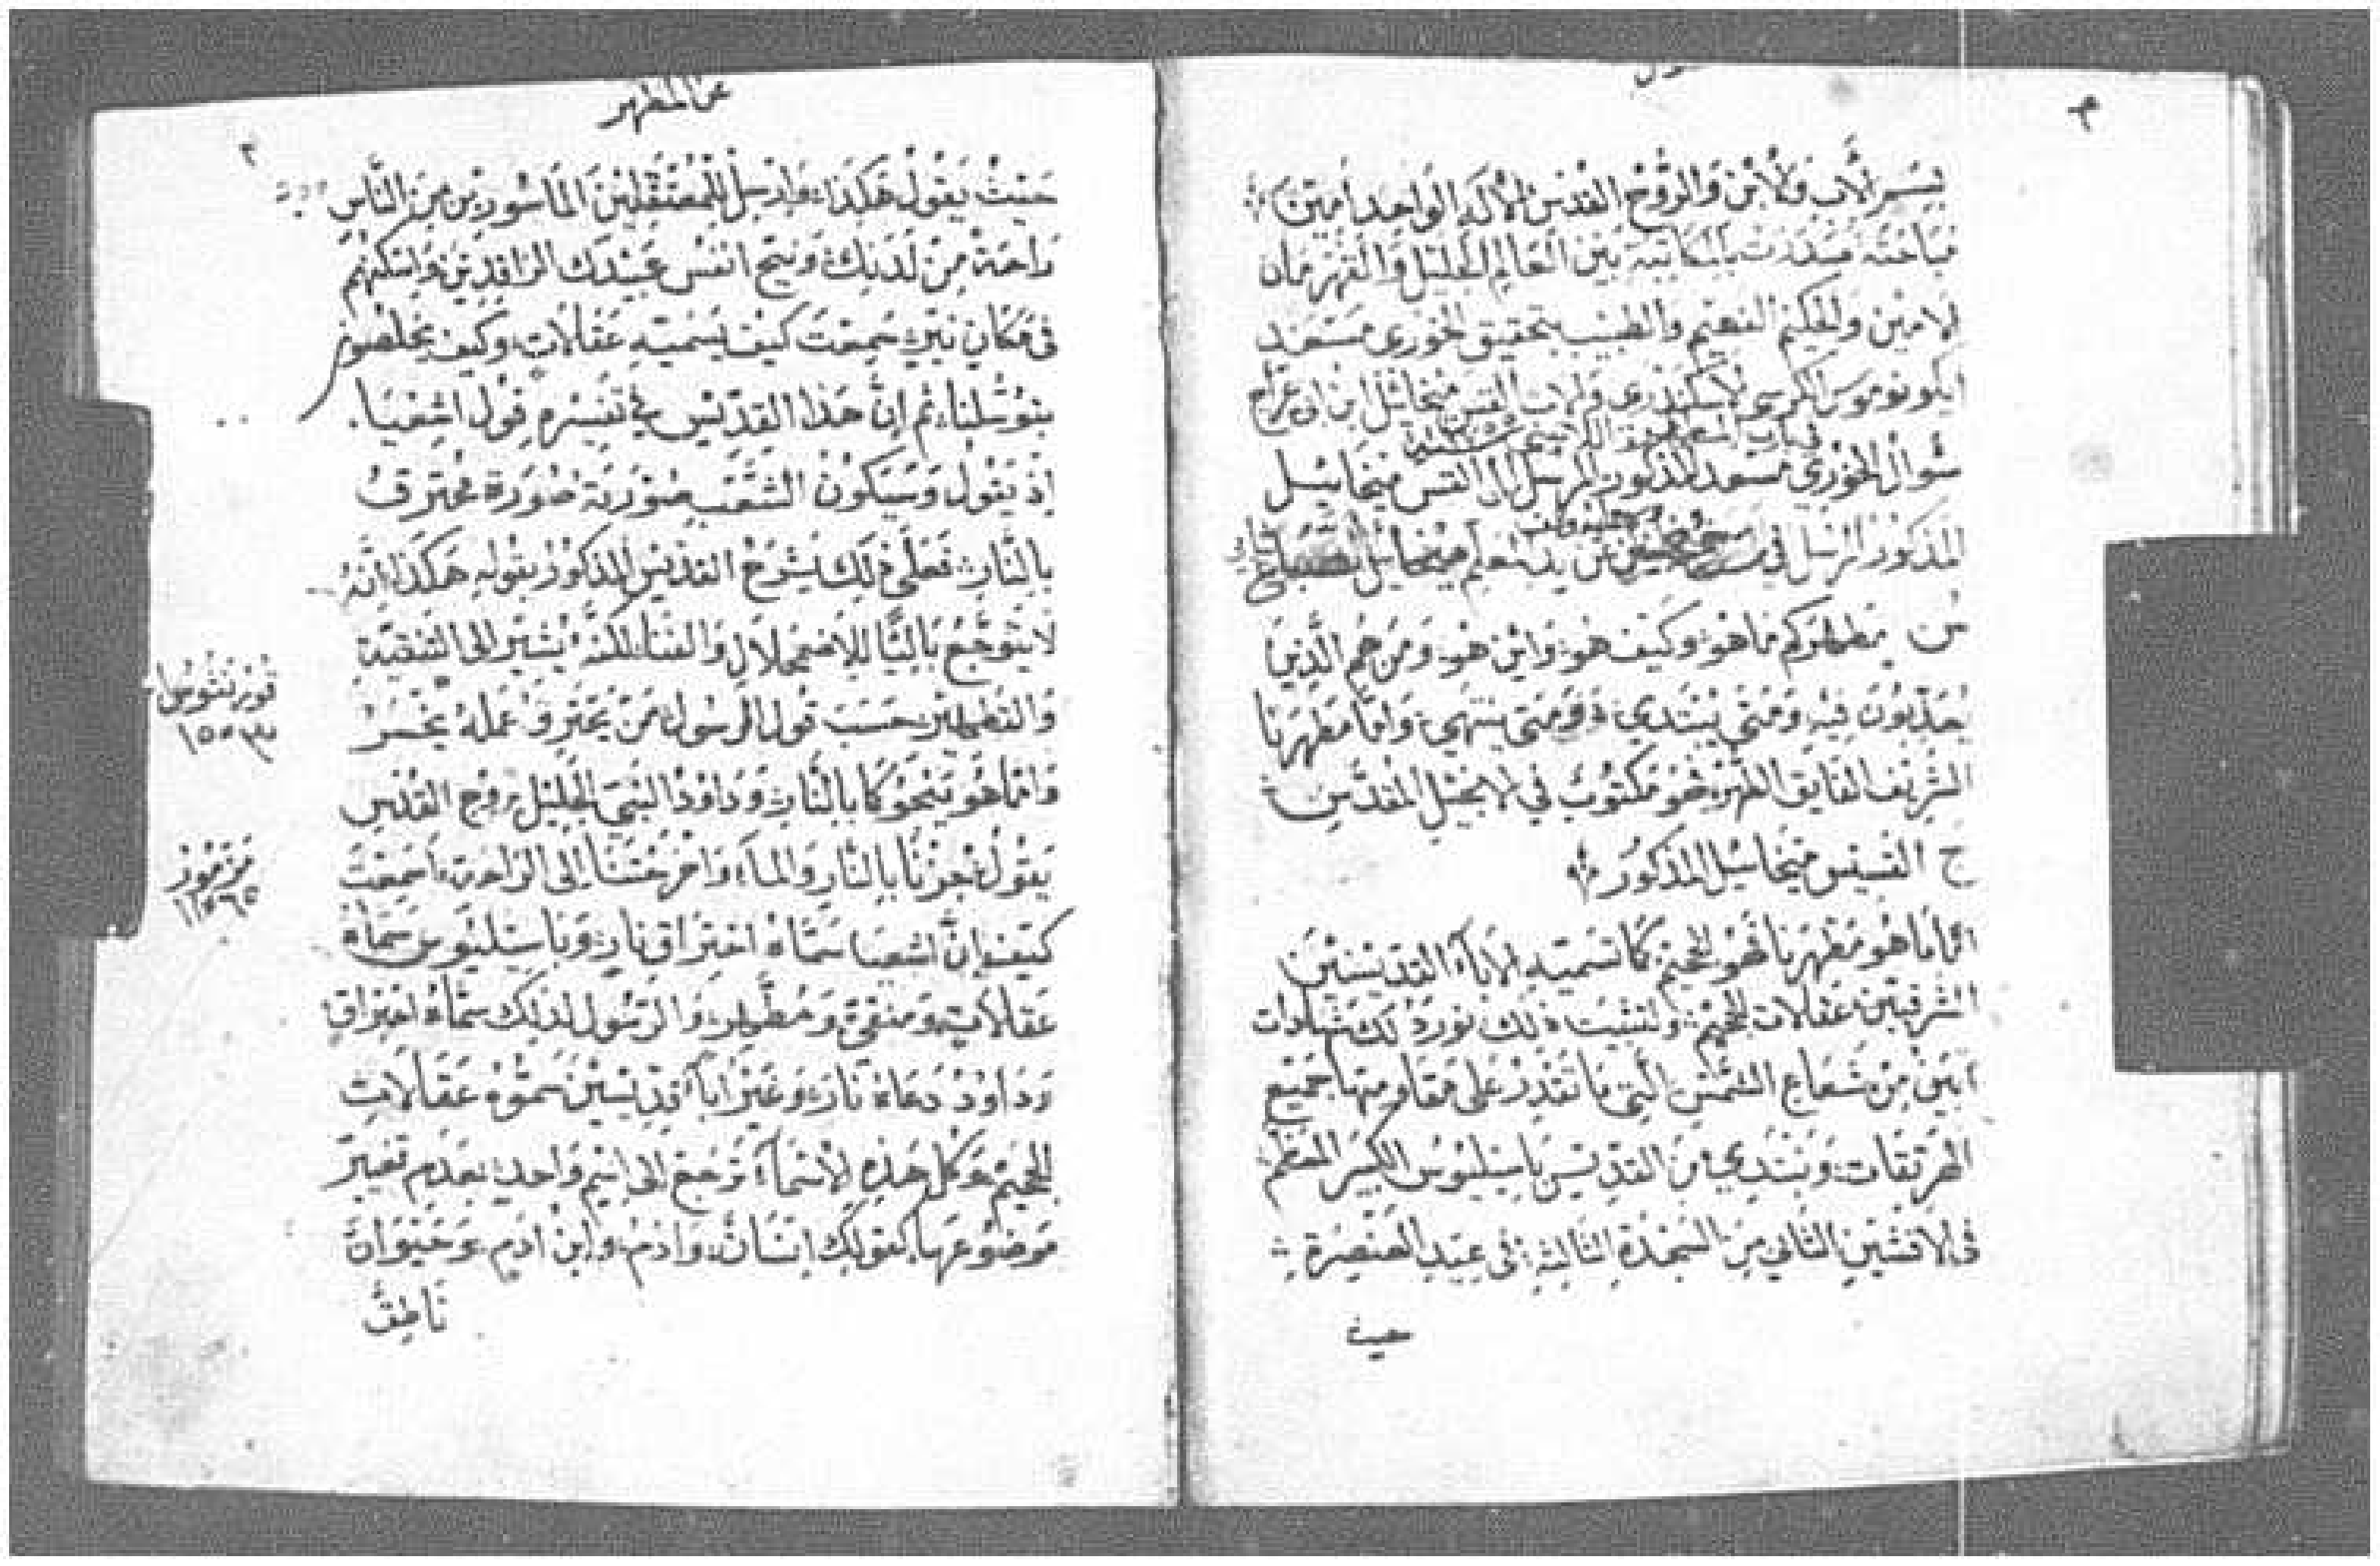 بسم الأب والابن والروح القدس الاله الواحد امين
مباحثة صدرت بالمكاتبة بين العالم الجليل والقهرمان
الامين والحكيم الفهيم والطبيب بتحقيق الخوري مسعد
ايكونوموس الكرسي الاسكندري والاب القس ميخائيل ابن
سوال الخوري مسعد المذكور المرسل الى القس ميخاييل
المذكور المرسل في عن يد معلم ميخاييل
س مطهركم ما هو وكيف هو واين هو ومن هم الذين
يعذبون فيه ومتى يبتدي ومتى ينتهي واما مطهرنا
الشريف الفايق الطهر فهو مكتوب في الانجيل المقدس
ج القسيس ميخاييل المذكور
اما ما هو مطهرنا فهو الجحيم كما تسميه الاباء القديسين
الشرقيين عقالات الجحيم ولتثبيت ذلك نورد لك شهادات
ابين من شعاع الشمس التي ما تقدر على مقاومتها جميع
الهرتقات ونبتدي من القديس باسيليوس الكبير المعظم
في الافشين الثاني من السجدة الثالثة في عيد العنصرة
حيث
عن المطهر
حيث يقول هكذا وارسل للمعتقلين الماسورين من الناس
راحة من لدنك ونيح انفس عبيدك الراقدين واسكنهم
في مكان نير سمعت كيف يسميه عقالات وكيف يخلصون
بتوسلنا ثم ان هذا القديس في تفسيره قول اشعيا
اذ يقول وسيكون الشعب صورته صورة محترق
بالنار فعلى ذلك يشرح القديس المذكور بقوله هكذا انه
لا يتوجع بالنار للاضمحلال والفنا لكنه يشير الى التنقية
والتطهير حسب قول الرسول من يحترق عمله يخسر
واما هو ينجو كما بالنار وداود النبي الجليل بروح القدس
يقول جزنا بالنار والماء واخرجتنا الى الراحة اسمعت
كيف ان اشعيا سماه احتراق نار وباسيليوس سماه
عقالات ومنقى ومطهر والرسول لذلك سماه احتراق
وداود دعاه نار وغير اباء قديسين سموه عقالات
الجحيم وكل هذه الاسماء ترجع الى اسم واحد بعدم تغيير
موضوعها كقولك انسان وادم وابن ادم وحيوان
ناطق
قورنثوس ا
٣ ١٥
مزمور
٦٥ ١٢